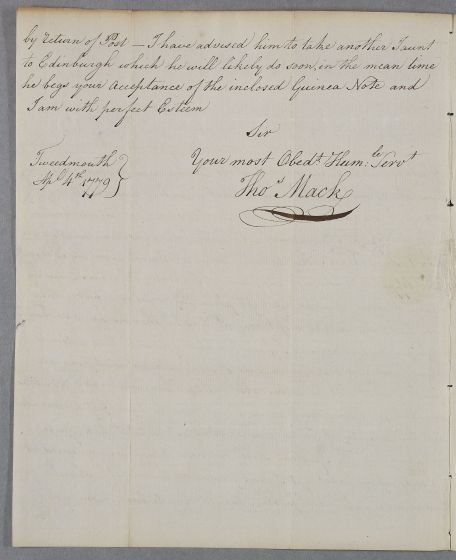 by return of Post — I have advised him to take another Jaunt
to Edinburgh which he will likely do soon, in the mean time
he begs your Acceptance of the inclosed Guinea Note and
I am with perfect Esteem
Sir
Your most Obedt. Hum:le Servt
Thos Mack
Tweedmouth
Apl 4th 1779 }